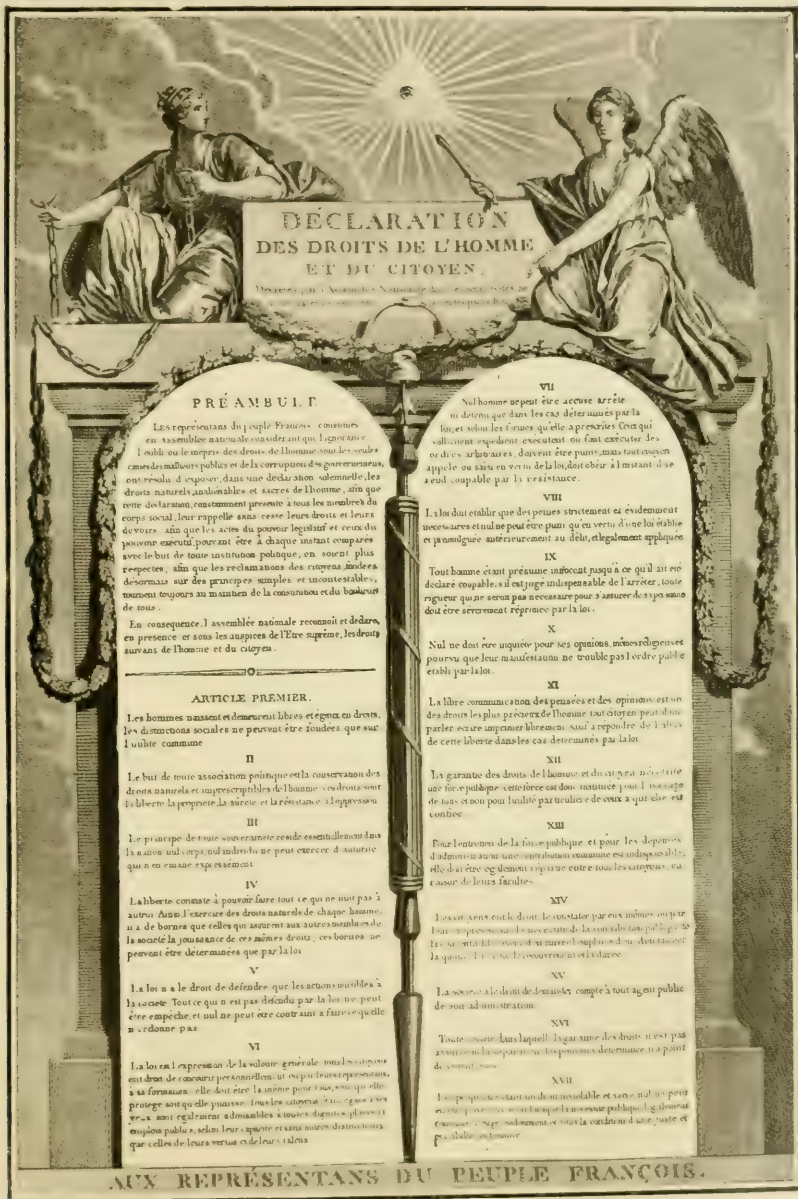 DÉCLARATION
DES DROITS DE L'HOMME
ET DU CITOYEN.
PRÉAMBULE
LES représentans du peuple François constitués
en assemblée nationale considérant que l'ignorance
l'oubli ou le mépris des droits de l'homme sont les seules
causes des malheurs publics et de la corruption des gouvernemens,
ont résolu d'exposer, dans une déclaration solemnelle, les
droits naturels, inaliénables et sacrés de l'homme, afin que
cette déclaration, constamment présente à tous les membres du
corps social, leur rappelle sans cesse leurs droits et leurs
devoirs afin que les actes du pouvoir législatif et ceux du
pouvoir exécutif, pouvant être à chaque instant comparés
avec le but de toute institution politique, en soient plus
respectés, afin que les réclamations des citoyens, fondées
désormais sur des principes simples et incontestables,
tournent toujours au maintien de la constitution et du bonheur
de tous.
En conséquence, l'assemblée nationale reconnoît et déclare,
en présence et sous les auspices de l'Etre suprême, les droits
suivans de l'homme et du citoyen.
ARTICLE PREMIER.
Les hommes naissent et demeurent libres et égaux en droits,
les distinctions sociales ne peuvent être fondées que sur
l'utilité commune
II
Le but de toute association politique est la conservation des
droits naturels et imprescriptibles de l'homme ces droits sont
la liberté la propriété, la sureté et la résistance à l'oppression
III
Le principe de toute souveraineté réside essentiellement dans
la nation nul corps, nul individu ne peut exercer d'autorité
qui n'en emane expressément
IV
La liberté consiste à pouvoir faire tout ce qui ne nuit pas à
autrui Ainsi l'exercice des droits naturels de chaque homme,
n'a de bornes que celles qui assurent aux autres membres de
la société la jouissance de ces mêmes droits, ces bornes ne
peuvent être déterminées que par la loi
V
La loi n'a le droit de défendre que les actions nuisibles à
la société Tout ce qui n'est pas défendu par la loi ne peut
être empêché, et nul ne peut être contraint à faire ce qu'elle
n'ordonne pas
VI
La loi est l'expression de la volonté générale tous les citoyens
ont droit de concourir personnellement ou par leurs représentans,
à sa formation elle doit être la même pour tous, soit qu'elle
protege soit qu'elle punisse Tous les citoyens étant égaux à ses
yeux sont également admissibles à toutes dignités places et
emplois publics, selon leur capacité et sans autres distinctions
que celles de leurs vertus et de leurs talens
VII
Nul homme ne peut être accusé arrêté
ni détenu que dans les cas déterminés par la
loi, et selon les formes qu'elle a prescrites Ceux qui
sollicitent expédient exécutent ou font exécuter des
ordres arbitraires, doivent être punis, mais tout citoyen
appelé ou saisi en vertu de la loi, doit obéir à l'instant il se
rend coupable par la résistance.
VIII
La loi doit établir que des peines strictement et évidemment
nécessaires et nul ne peut être puni qu'en vertu d'une loi établie
et promulguée antérieurement au délit, et légalement appliquée
IX
Tout homme étant présumé innocent jusqu'à ce qu'il ait été
déclaré coupable, s'il est jugé indispensable de l'arrêter, toute
rigueur qui ne seroit pas nécessaire pour s'assurer de sa personne
doit être sévèrement réprimée par la loi.
X
Nul ne doit être inquiété pour ses opinions, mêmes religieuses
pourvu que leur manifestation ne trouble pas l'ordre public
établi par la loi.
XI
La libre communication des pensées et des opinions est un
des droits les plus précieux de l'homme tout citoyen peut donc
parler écrire imprimer librement sauf à répondre de l'abus
de cette liberté dans les cas déterminés par la loi
XII
La garantie des droits de l'homme et du citoyen nécessite
une force publique cette force est donc instituée pour l'avantage
de tous et non pour l'utilité particulière de ceux à qui elle est
confiée
XIII
Pour l'entretien de la force publique et pour les dépenses
d'administration une contribution commune est indispensable,
elle doit être également répartie entre tous les citoyens, en
raison de leurs facultés
XIV
Les citoyens ont le droit de constater par eux mêmes ou par
XV
La société a le droit de demander compte à tout agent public
de son administration
XVI
Toute société dans laquelle la garantie des droits n'est pas
XVII
AUX REPRÉSENTANS DU PEUPLE FRANÇOIS.